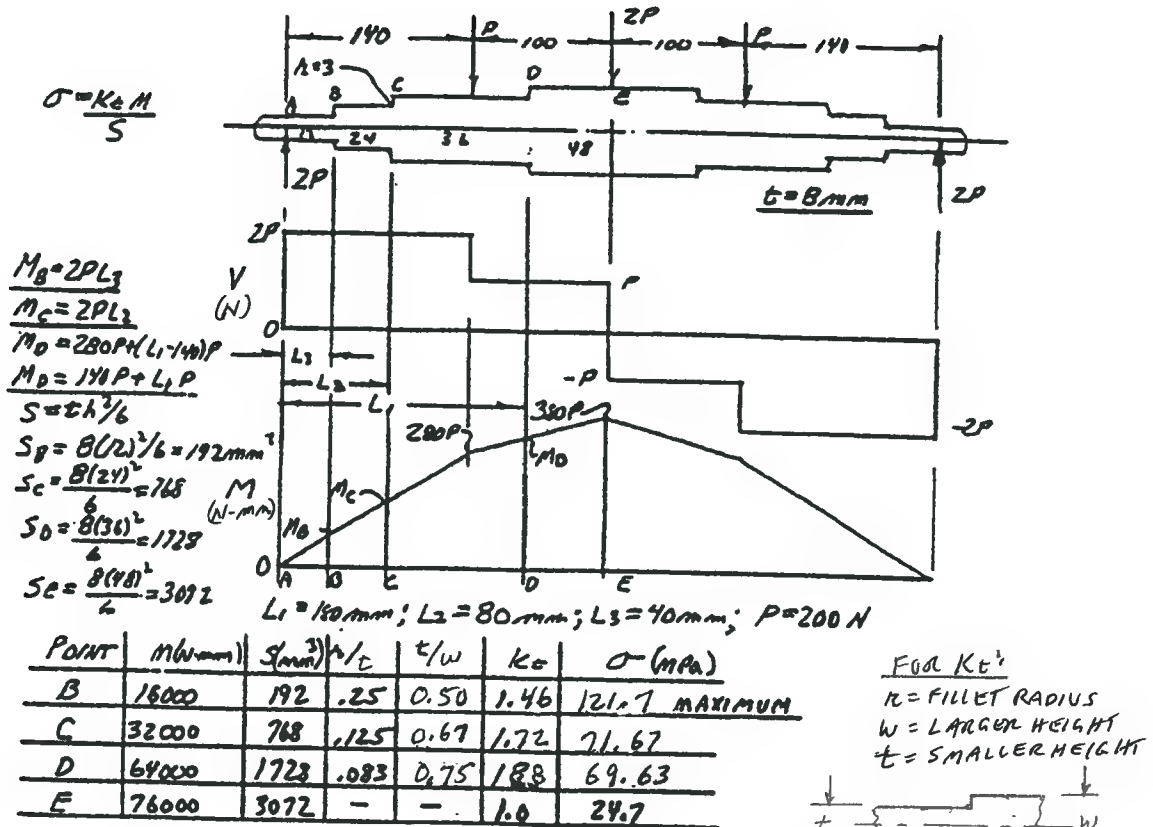 140
P
100
2P
100
P
140
r=3
σ = Kt M / S
A
B
C
D
E
24
36
48
2P
t = 8mm
2P
M_B = 2PL3
M_C = 2PL2
M_D = 280P + (L1-140)P
M_D = 140P + L1 P
S = th²/6
S_B = 8(12)²/6 = 192mm³
S_C = 8(24)²/6 = 768
S_D = 8(36)²/6 = 1728
S_E = 8(48)²/6 = 3092
2P
V
(N)
0
P
-P
-2P
L3
L2
L1
280P
380P
M_D
M_C
M_B
M
(N-mm)
0
A B C D E
L1 = 180mm; L2 = 80mm; L3 = 40mm; P = 200 N
POINT M(N-mm) S(mm³) r/t t/w Kt σ (MPa)
B 16000 192 .25 0.50 1.46 121.7 MAXIMUM
C 32000 768 .125 0.67 1.72 71.67
D 64000 1728 .083 0.75 1.88 69.63
E 76000 3072 - - 1.0 24.7
FOR Kt:
r = FILLET RADIUS
W = LARGER HEIGHT
t = SMALLER HEIGHT
t
W